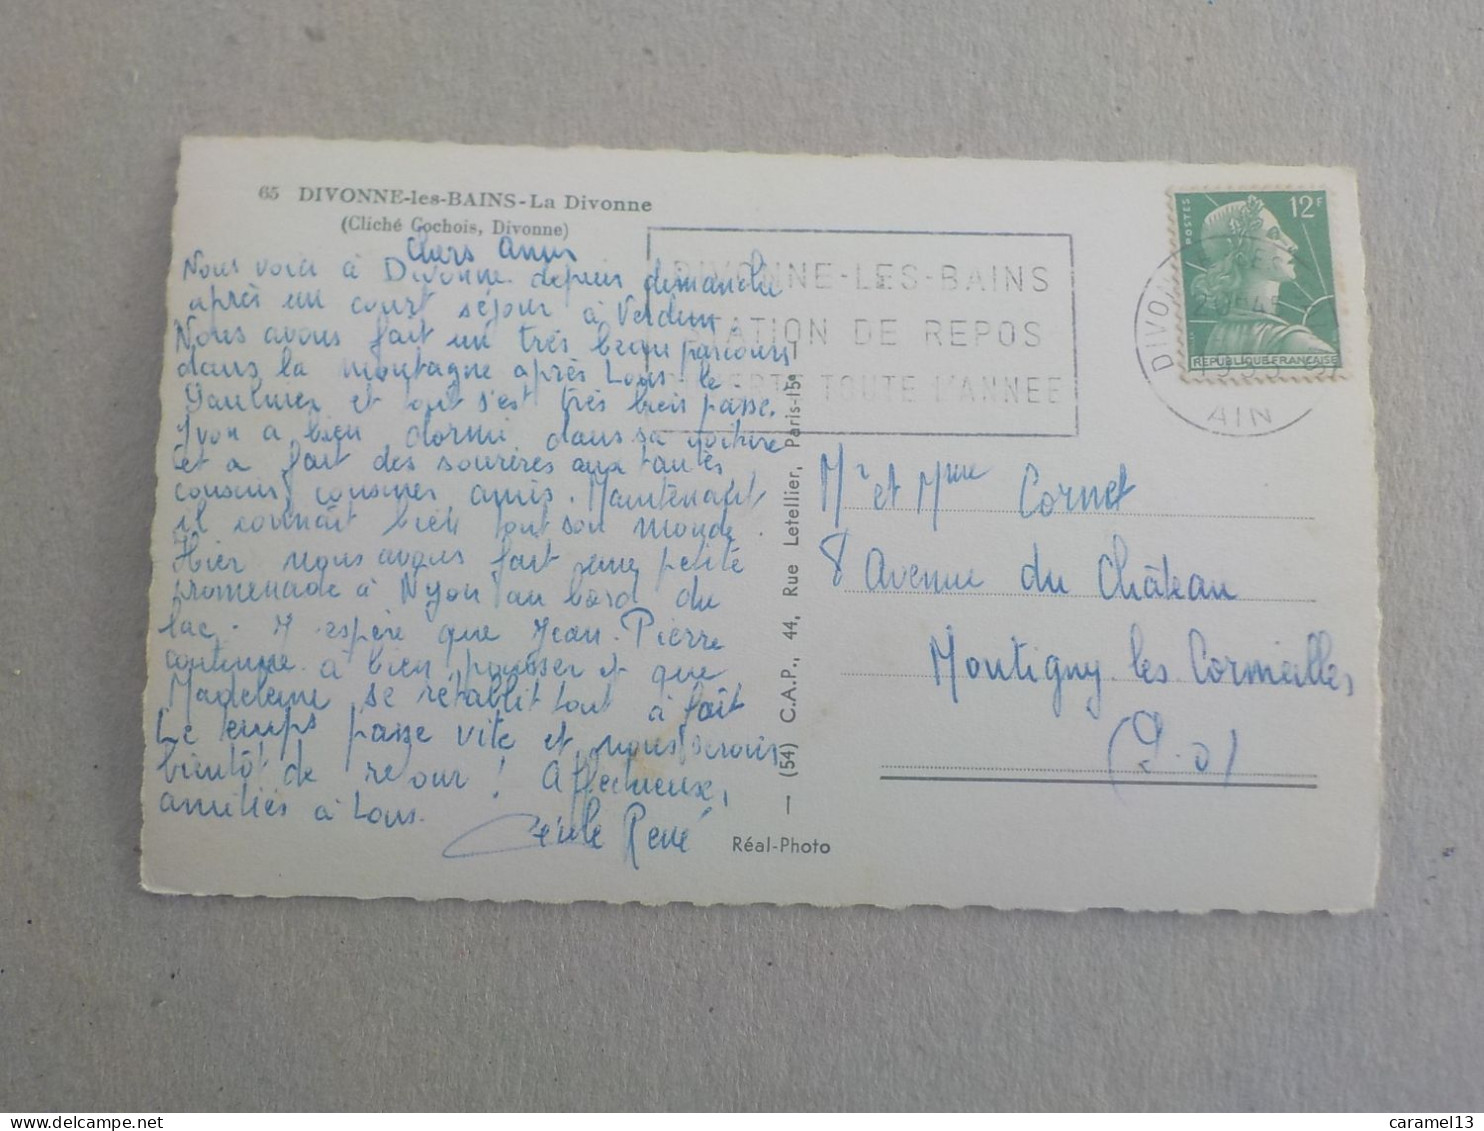 65 DIVONNE-les-BAINS - La Divonne
(Cliché Gochois, Divonne)
Chers Amis
Nous voici à Divonne depuis dimanche
après un court séjour à Verdun.
Nous avons fait un très beau parcours
dans la montagne après Lons-le
Saulnier et tout s'est très bien passé.
Yvon a bien dormi dans sa voiture
et a fait des sourires aux tantes
cousins, cousines, amis. Maintenant
il connaît bien tout son monde.
Hier nous avons fait une petite
promenade à Nyon au bord du
lac. J'espère que Jean-Pierre
continue à bien pousser et que
Madeleine se rétablit tout à fait
Le temps passe vite et nous serons
bientôt de retour! Affectueuses
amitiés à tous.
Cécile René
DIVONNE-LES-BAINS
STATION DE REPOS
OUVERTE TOUTE L'ANNEE
POSTES
12F
REPUBLIQUE FRANÇAISE
DIVONNE
AIN
Mr et Mme Cornet
8 Avenue du Château
Montigny les Cormeilles
(S.-O)
— (54) C.A.P., 44, Rue Letellier, Paris-15e —
Réal-Photo
www.delcampe.net
caramel13